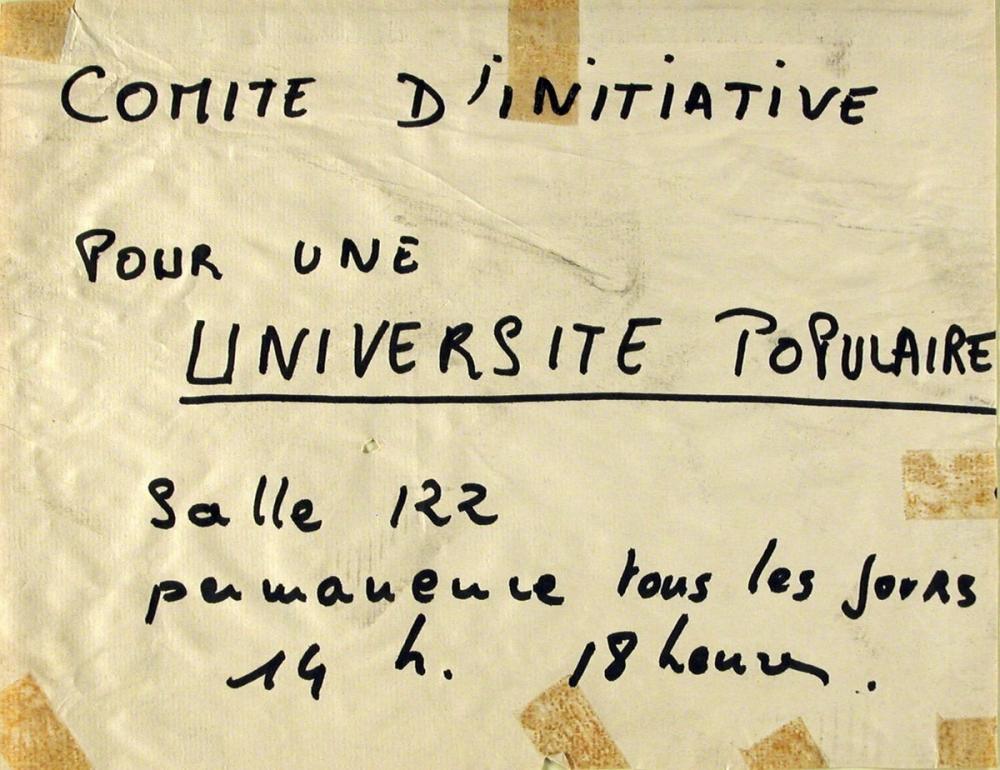 COMITE D'INITIATIVE
POUR UNE
UNIVERSITE POPULAIRE
Salle 122
permanence tous les jours
14 h. 18 heures.